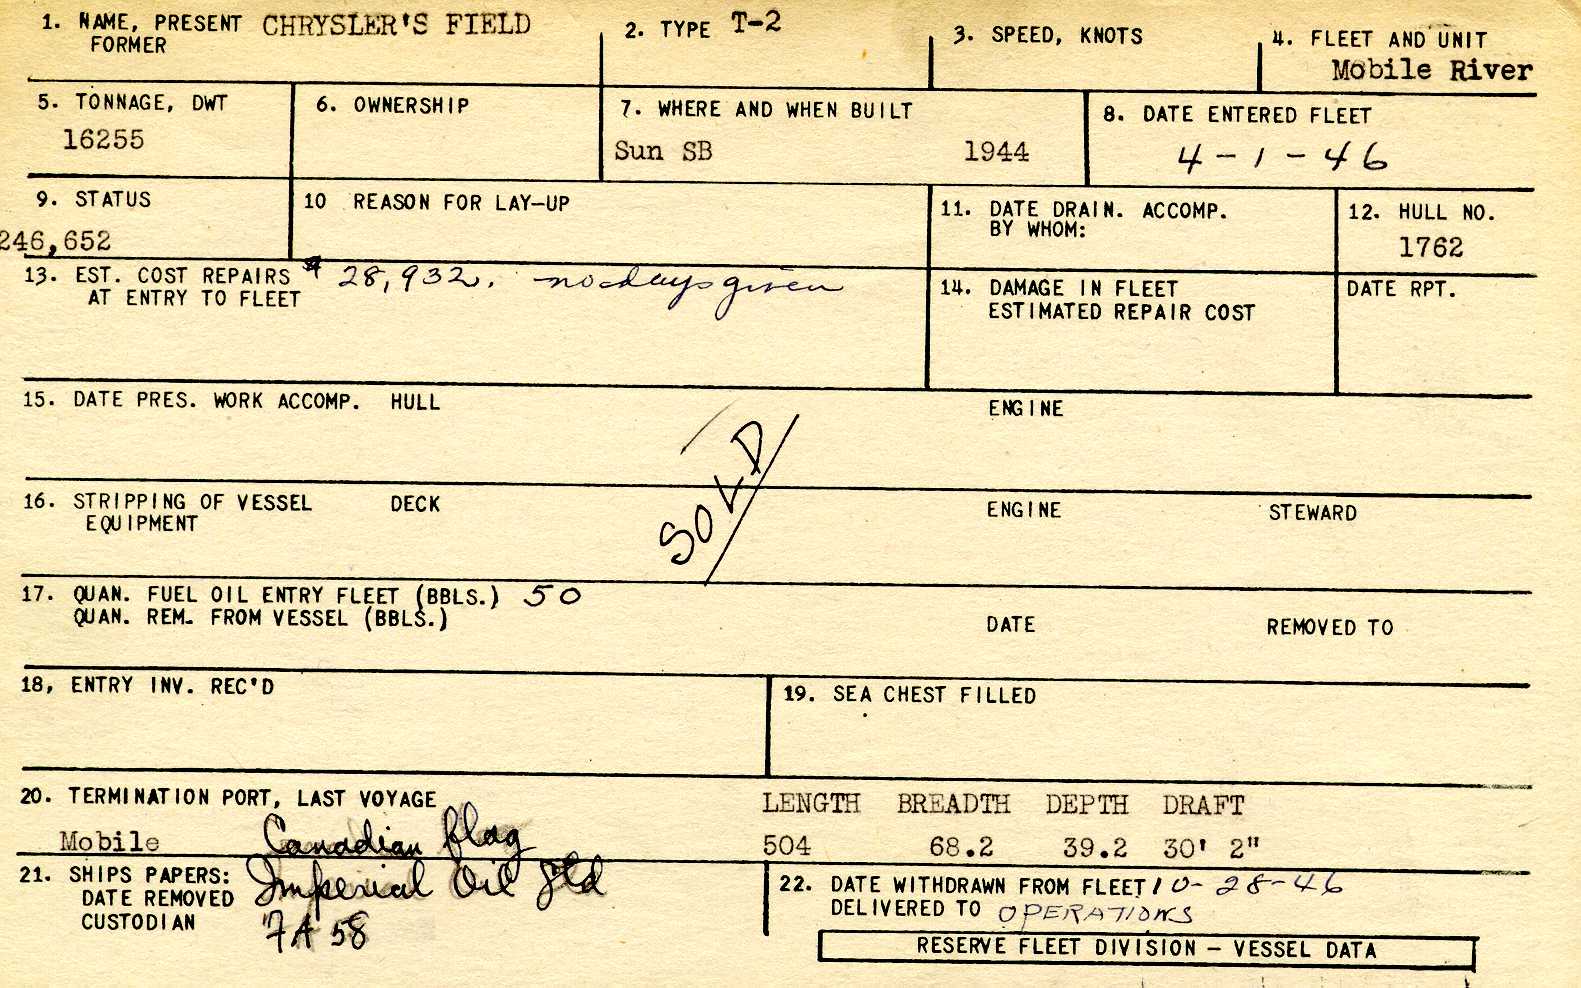 1. NAME, PRESENT CHRYSLER'S FIELD
FORMER
2. TYPE T-2
3. SPEED, KNOTS
4. FLEET AND UNIT
Mobile River
5. TONNAGE, DWT
16255
6. OWNERSHIP
7. WHERE AND WHEN BUILT
Sun SB 1944
8. DATE ENTERED FLEET
4-1-46
9. STATUS
246,652
10 REASON FOR LAY-UP
11. DATE DRAIN. ACCOMP.
BY WHOM:
12. HULL NO.
1762
13. EST. COST REPAIRS $ 28,932. no days given
AT ENTRY TO FLEET
14. DAMAGE IN FLEET
ESTIMATED REPAIR COST
DATE RPT.
15. DATE PRES. WORK ACCOMP. HULL ENGINE
SOLD
16. STRIPPING OF VESSEL DECK ENGINE STEWARD
EQUIPMENT
17. QUAN. FUEL OIL ENTRY FLEET (BBLS.) 50
QUAN. REM. FROM VESSEL (BBLS.) DATE REMOVED TO
18, ENTRY INV. REC'D
19. SEA CHEST FILLED
20. TERMINATION PORT, LAST VOYAGE
Mobile Canadian flag
LENGTH BREADTH DEPTH DRAFT
504 68.2 39.2 30' 2"
21. SHIPS PAPERS: Imperial Oil Ltd
DATE REMOVED
CUSTODIAN 7A 58
22. DATE WITHDRAWN FROM FLEET 10-28-46
DELIVERED TO OPERATIONS
RESERVE FLEET DIVISION - VESSEL DATA